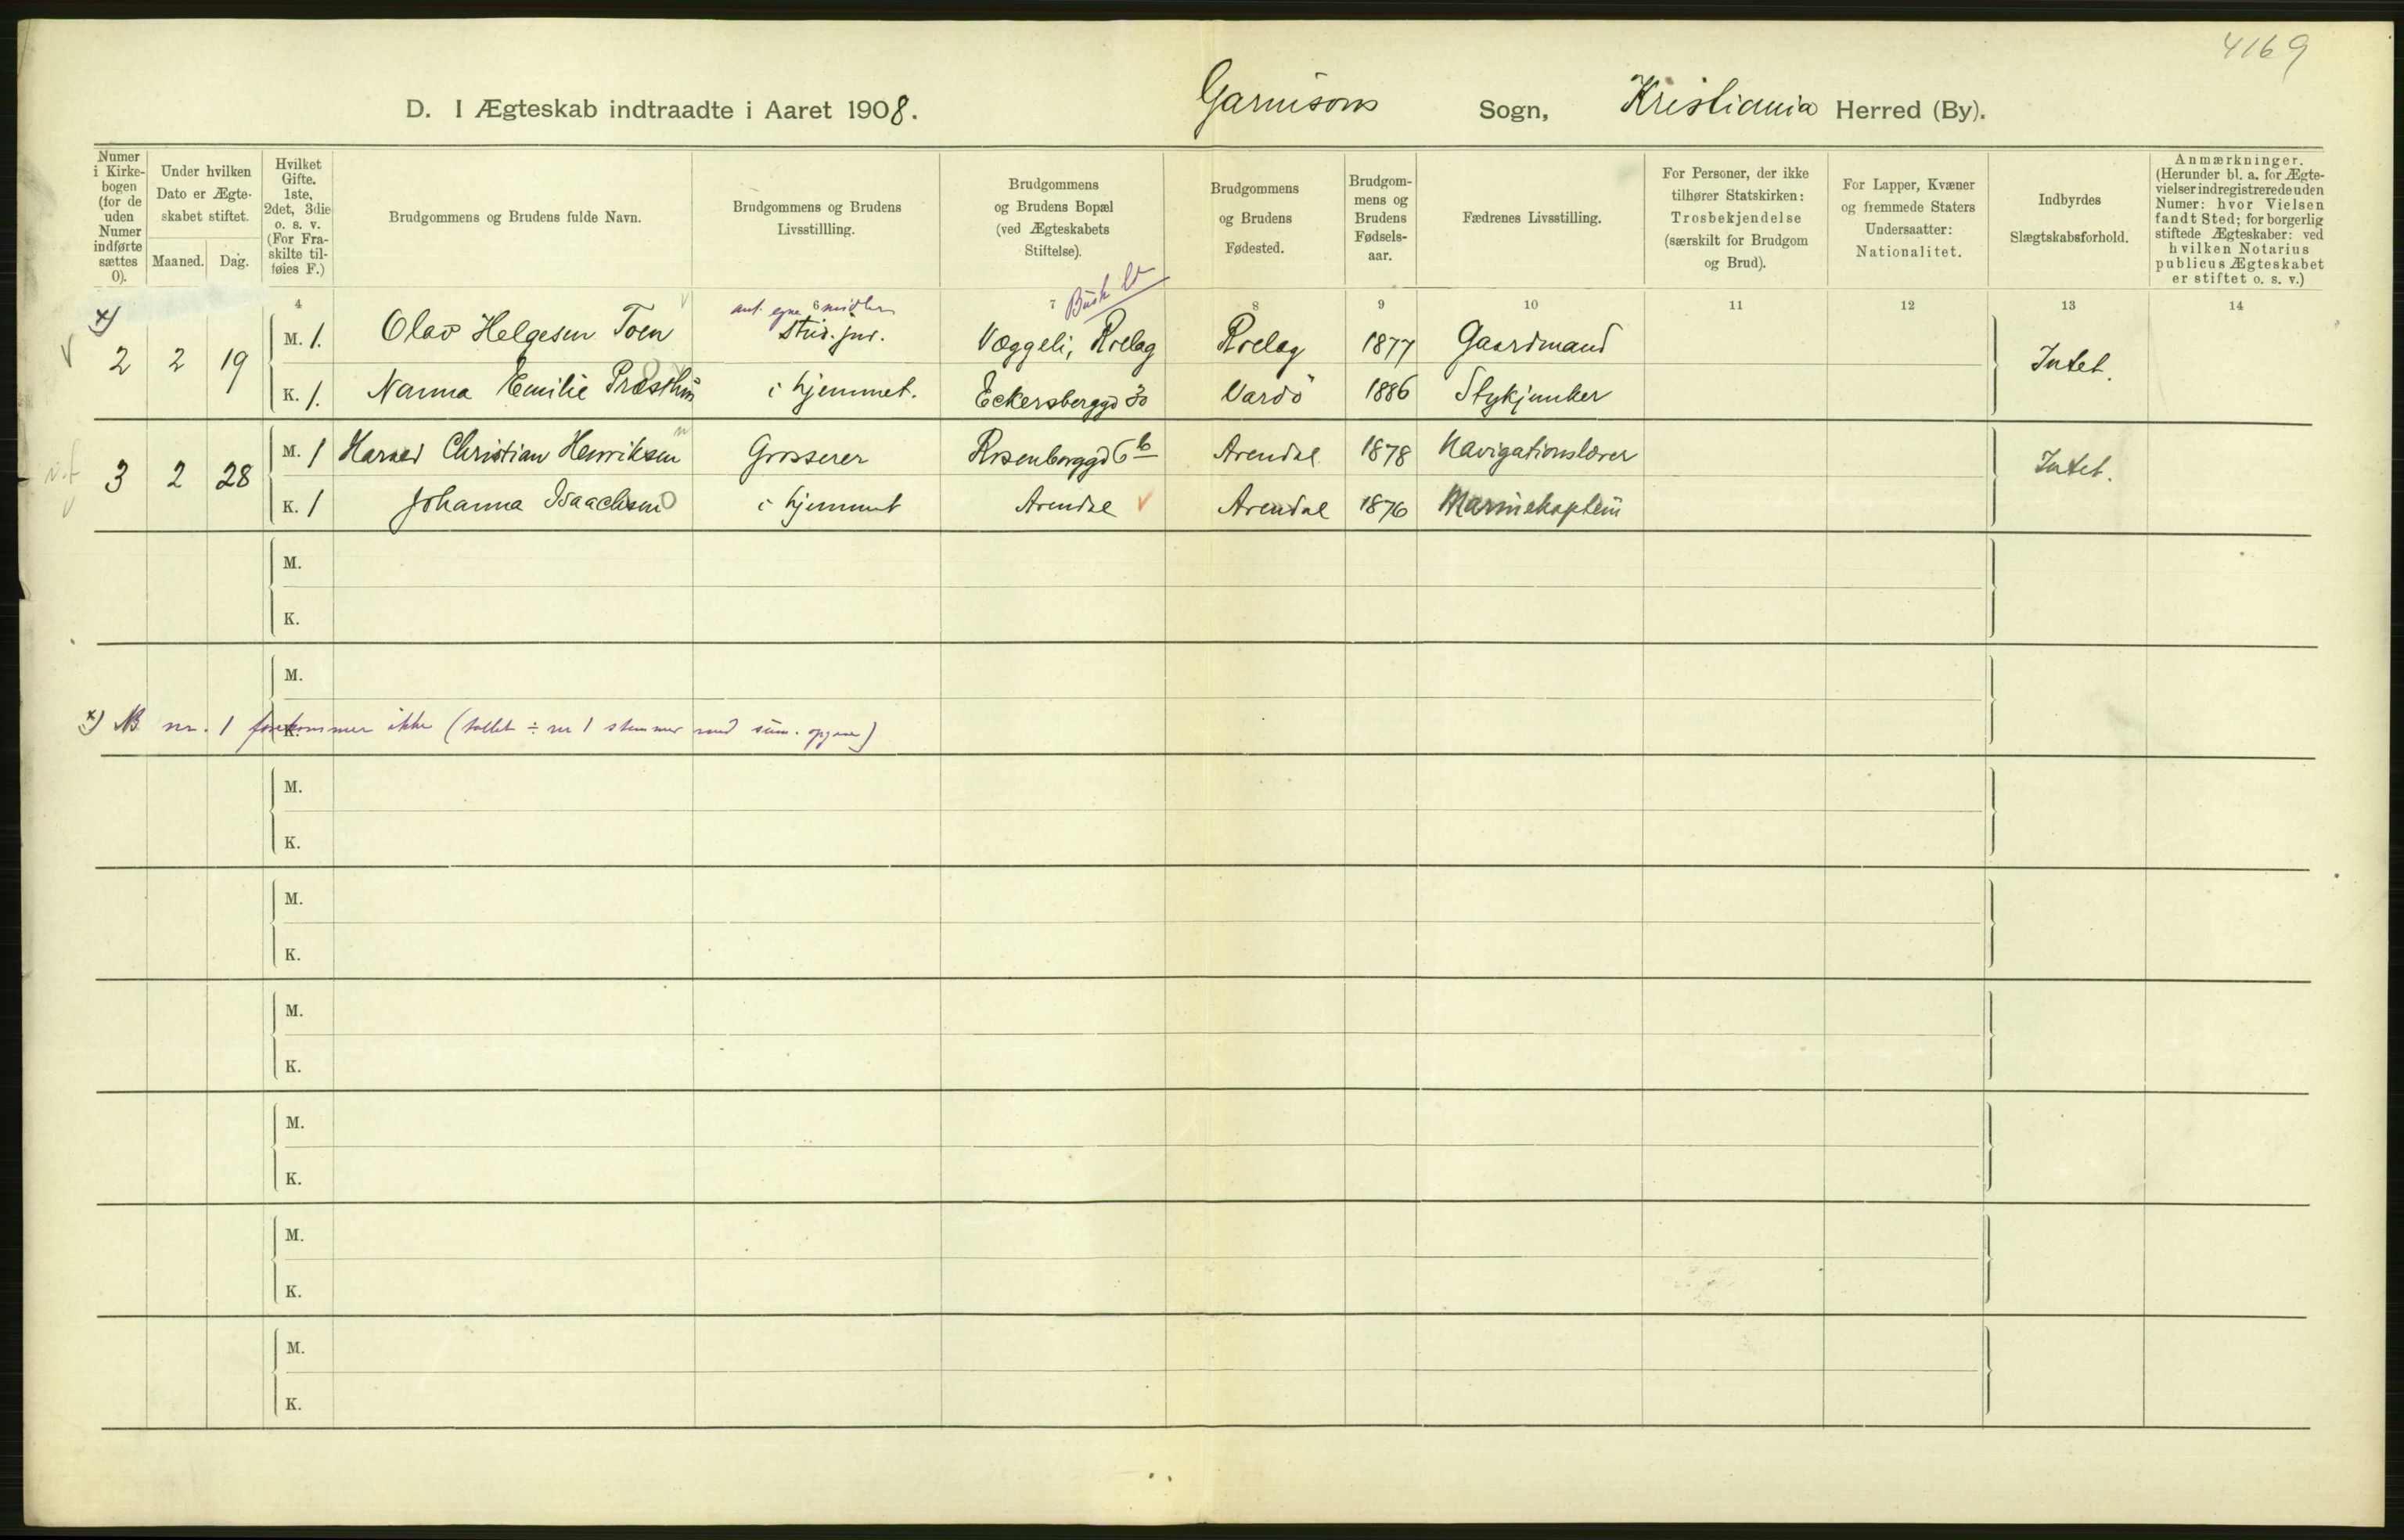 4169
D. I Ægteskab indtraadte i Aaret 1908. Garnisons Sogn, Kristiania Herred (By).
Numer i Kirke-bogen (for de uden Numer indførte sættes 0).
Under hvilken Dato er Ægte-skabet stiftet.
Maaned. Dag.
Hvilket Gifte. 1ste, 2det, 3die o. s. v. (For Fra-skilte til-føies F.)
Brudgommens og Brudens fulde Navn.
Brudgommens og Brudens Livsstillling.
Brudgommens og Brudens Bopæl (ved Ægteskabets Stiftelse).
Brudgommens og Brudens Fødested.
Brudgom-mens og Brudens Fødsels-aar.
Fædrenes Livsstilling.
For Personer, der ikke tilhører Statskirken: Trosbekjendelse (særskilt for Brudgom og Brud).
For Lapper, Kvæner og fremmede Staters Undersaatter: Nationalitet.
Indbyrdes Slægtskabsforhold.
Anmærkninger. (Herunder bl. a. for Ægte-vielser indregistrerede uden Numer: hvor Vielsen fandt Sted; for borgerlig stiftede Ægteskaber: ved hvilken Notarius publicus Ægteskabet er stiftet o. s. v.)
4 6 7 8 9 10 11 12 13 14
x) ant. egne midler Busk
2 2 19 M. 1. Olav Helgesen Toen stud. jur. Væggeli, Rolag Rolag 1877 Gaardmand Intet.
K. 1. Nanna Emilie Præsthus i hjemmet. Eckersberggd 30 Vardö 1886 Stykjunker
3 2 28 M. 1 Christian Henriksen Grosserer Rosenborggd 6 b Arendal 1878 Navigationslærer Intet.
K. 1 Johanna Isaachsen i hjemmet Arendal Arendal 1876 Marinekaptein
M.
K.
M.
x) NB nr. 1 forekommer ikke (tallet ÷ nr 1 stemmer med sum. opgave)
K.
M.
K.
M.
K.
M.
K.
M.
K.
M.
K.
M.
K.